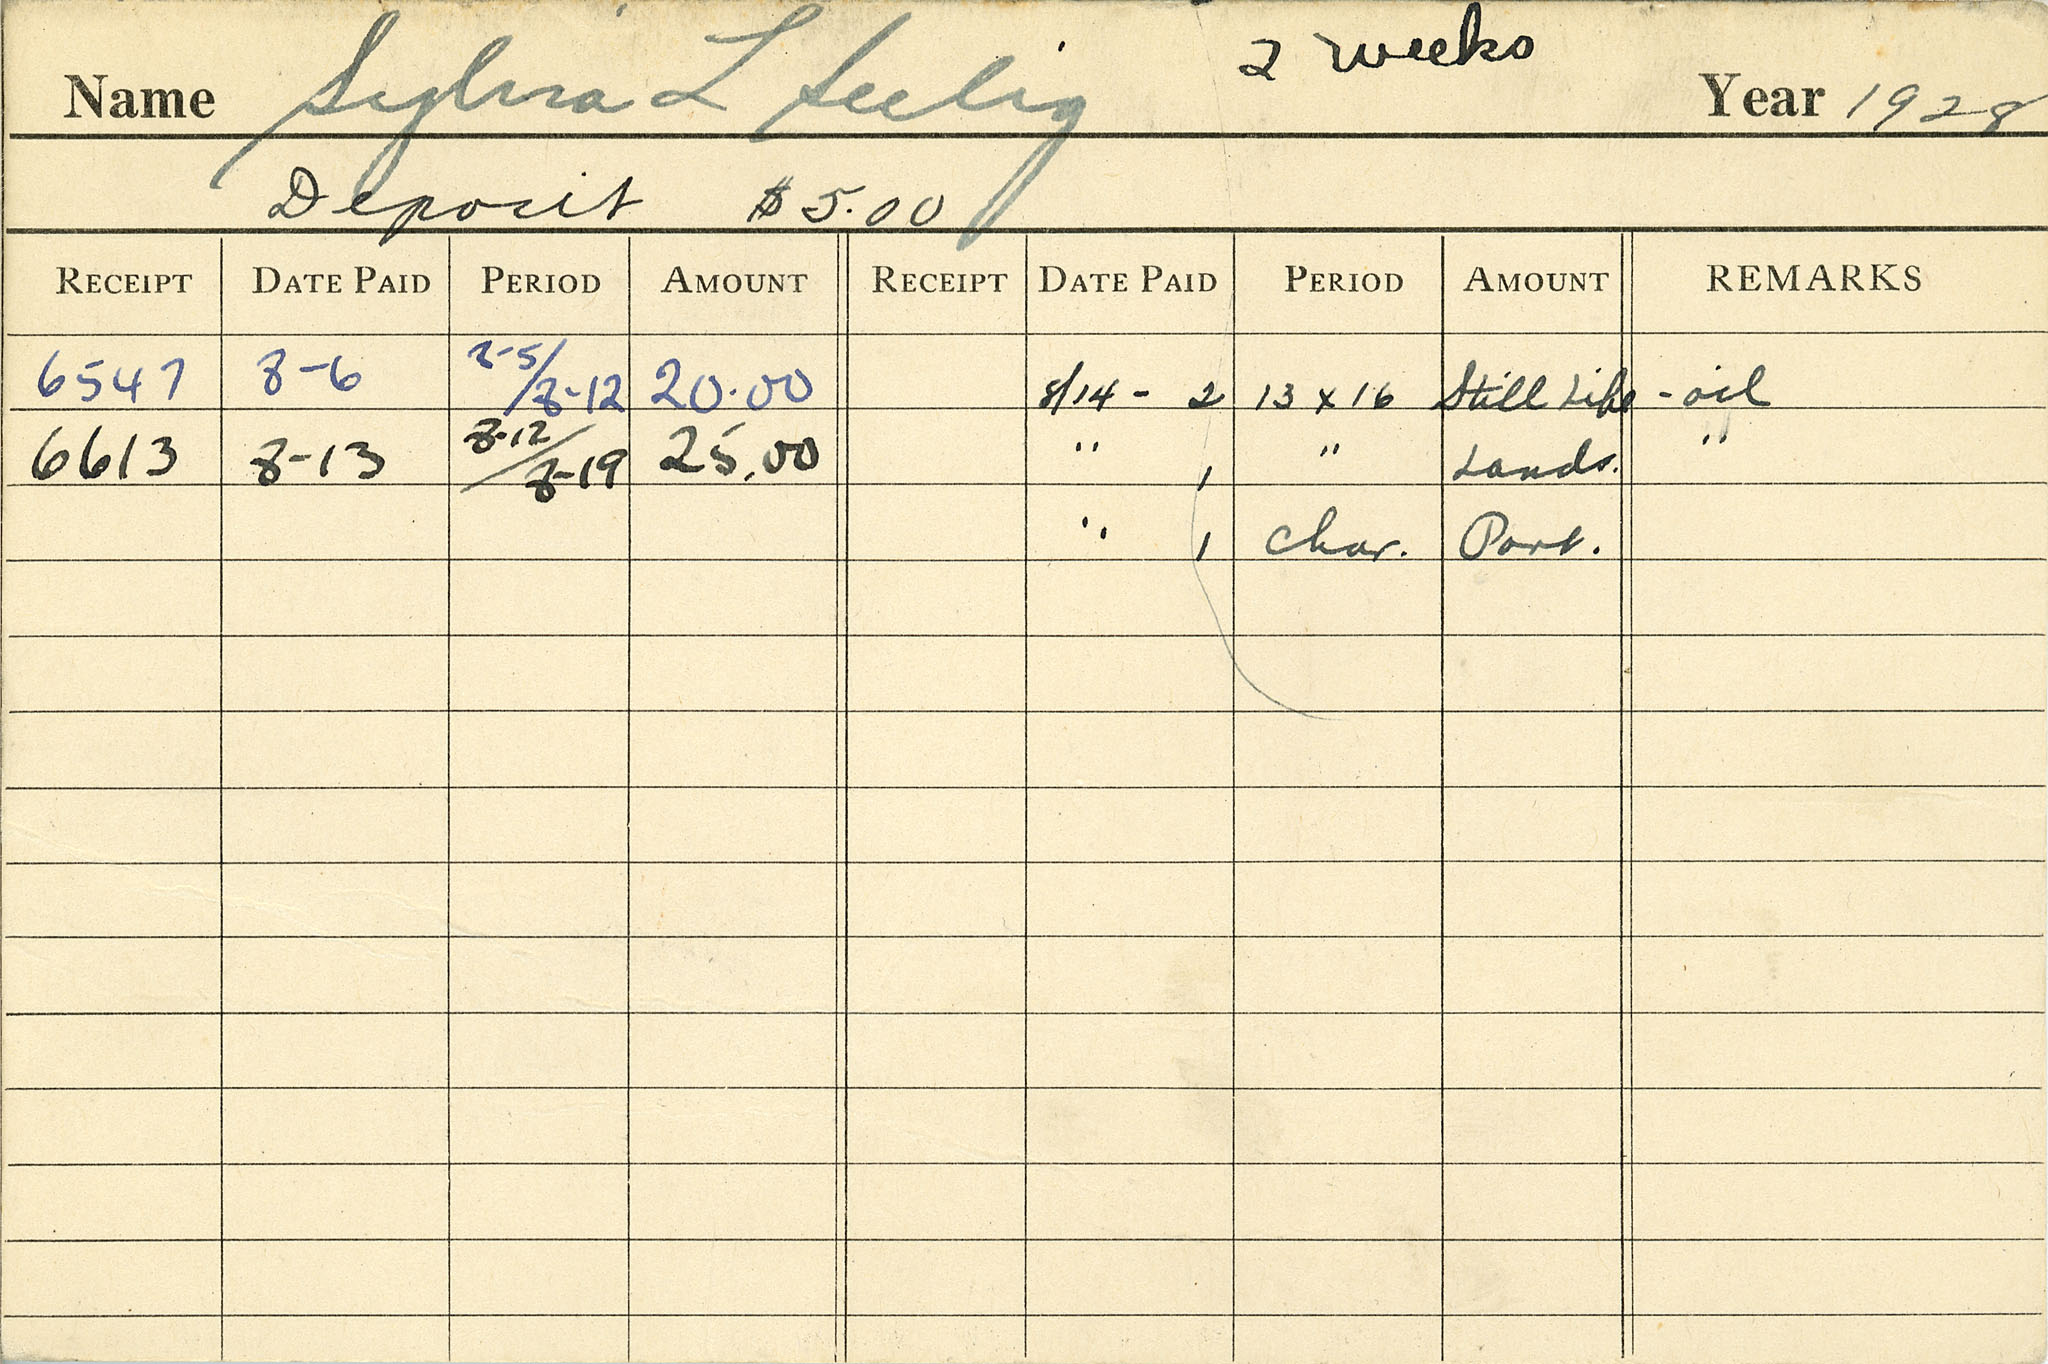 Name Sylvia L Seelig 2 weeks Year 1928
Deposit $5.00
RECEIPT DATE PAID PERIOD AMOUNT RECEIPT DATE PAID PERIOD AMOUNT REMARKS
6547 8-6 8-5/8-12 20.00 8/14 - 2 13 x 16 Still Life - oil
6613 8-13 8-12/8-19 25.00 " 1 " Lands. "
" 1 Char. Port.